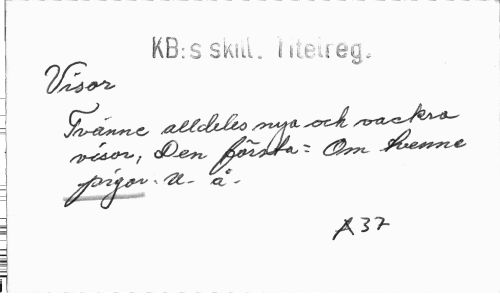 KB:s skill. Titelreg.
Visor
Tvänne alldeles nya och vackra
visor, Den första = Om tvenne
pigor. U. å.
A 37